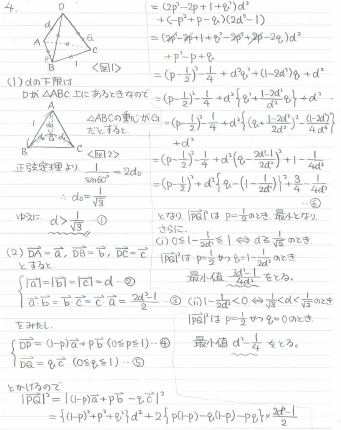 4.
D
d
A
P
Q
C
B
1
<図1>
(1) dの下限は
Dが△ABC上にあるときなので
A
d₀
B
1
C
<図2>
△ABCの重心がG
だとすると
正弦定理より 1/sin60° = 2d₀
∴ d₀ = 1/√3
ゆえに d > 1/√3 …①
(2) DA = a, DB = b, DC = c
とすると
{ |a| = |b| = |c| = d …②
a·b = b·c = c·a = (2d²-1)/2 …③
をみたし、
{ DP = (1-p)a + pb (0≤p≤1) …④
DQ = qc (0≤q≤1) …⑤
とかけるので
|PQ|² = |(1-p)a + pb - qc|²
= {(1-p)² + p² + q²}d² + 2{p(1-p) - q(1-p) - pq} × (2d²-1)/2
= (2p²-2p+1+q²)d²
+(-p²+p-q)(2d²-1)
= (2p²-2p+1+q²-2p²+2p-2q)d²
+p²-p+q
= (p-1/2)² - 1/4 + d²q² + (1-2d²)q + d²
= (p-1/2)² - 1/4 + d²{q² + (1-2d²)/d² q} + d²
= (p-1/2)² - 1/4 + d²{(q + (1-2d²)/2d²)² - (1-2d²)²/4d⁴}
+ d²
= (p-1/2)² - 1/4 + d²(q - (2d²-1)/2d²)² + 1 - 1/4d²
= (p-1/2)² + d²{q - (1 - 1/2d²)}² + 3/4 - 1/4d²
…⑥
となり |PQ|² は p=1/2 のとき 最小となり、
さらに
(i) 0≤1-1/2d²≤1 ⇔ d≥1/√2 のとき
|PQ|² は p=1/2 かつ q=1-1/2d² のとき
最小値 (3d²-1)/4d² をとる。
(ii) 1-1/2d²<0 ⇔ 1/√3<d<1/√2 のとき
|PQ|² は p=1/2 かつ q=0 のとき
最小値 d²-1/4 をとる。